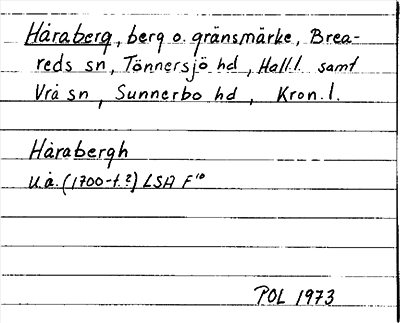 Håraberg, berg o. gränsmärke, Brea-
reds sn, Tönnersjö hd, Hall.l. samt
Vrå sn, Sunnerbo hd, Kron.l.
Hårabergh
U.å. (1700-t.?) LSA F¹⁰
POL 1973